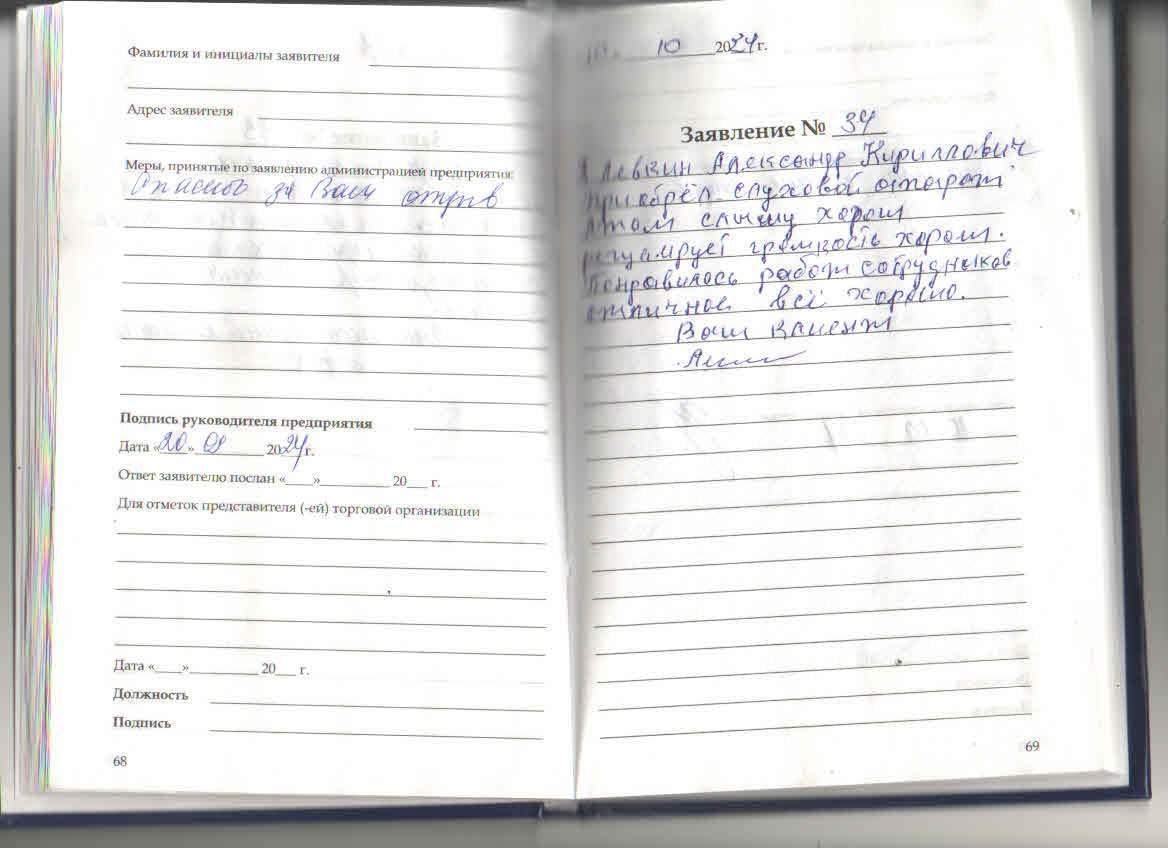 Фамилия и инициалы заявителя
Адрес заявителя
Меры, принятые по заявлению администрацией предприятия:
Спасибо за Ваш отзыв
Подпись руководителя предприятия
Дата «20» 09 2024г.
Ответ заявителю послан «___»__________ 20___ г.
Для отметок представителя (-ей) торговой организации
Дата «____»__________ 20___ г.
Должность
Подпись
68
10 2024г.
Заявление № 34
Я Левкин Александр Кириллович
приобрёл слуховой аппарат
слышу хорош
регулирует громкость хорош.
Понравилось работа сотрудников
отличное всё хорошо.
Ваш клиент
69